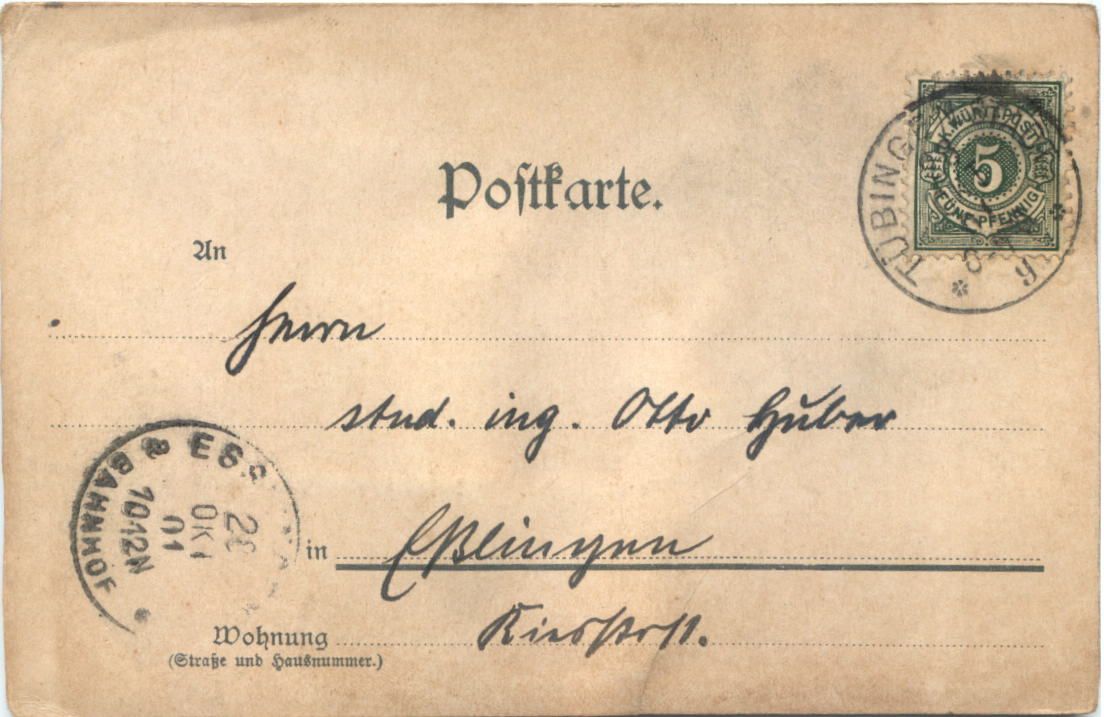 Postkarte.
K. WÜRTT. POST
5
FÜNF PFENNIG
TÜBINGEN
An
Herrn
stud. ing. Otto Huber
in Eßlingen
Wohnung
(Straße und Hausnummer.)
BAHNHOF
OKT
01
10-12N